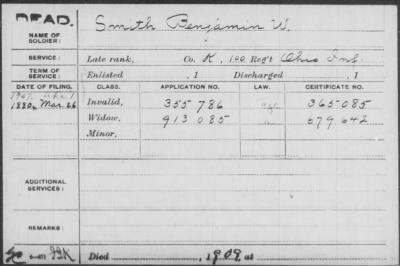 DEAD.
NAME OF SOLDIER: Smith Benjamin W.
SERVICE: Late rank, Co. K, 190 Reg't Ohio Inf.
TERM OF SERVICE: Enlisted , 1 Discharged , 1
DATE OF FILING. CLASS. APPLICATION NO. LAW. CERTIFICATE NO.
1880, Mar. 26 Invalid, 355 786 365 085
Widow, 913 085 679 642
Minor,
ADDITIONAL SERVICES:
REMARKS:
Died , 1909, at